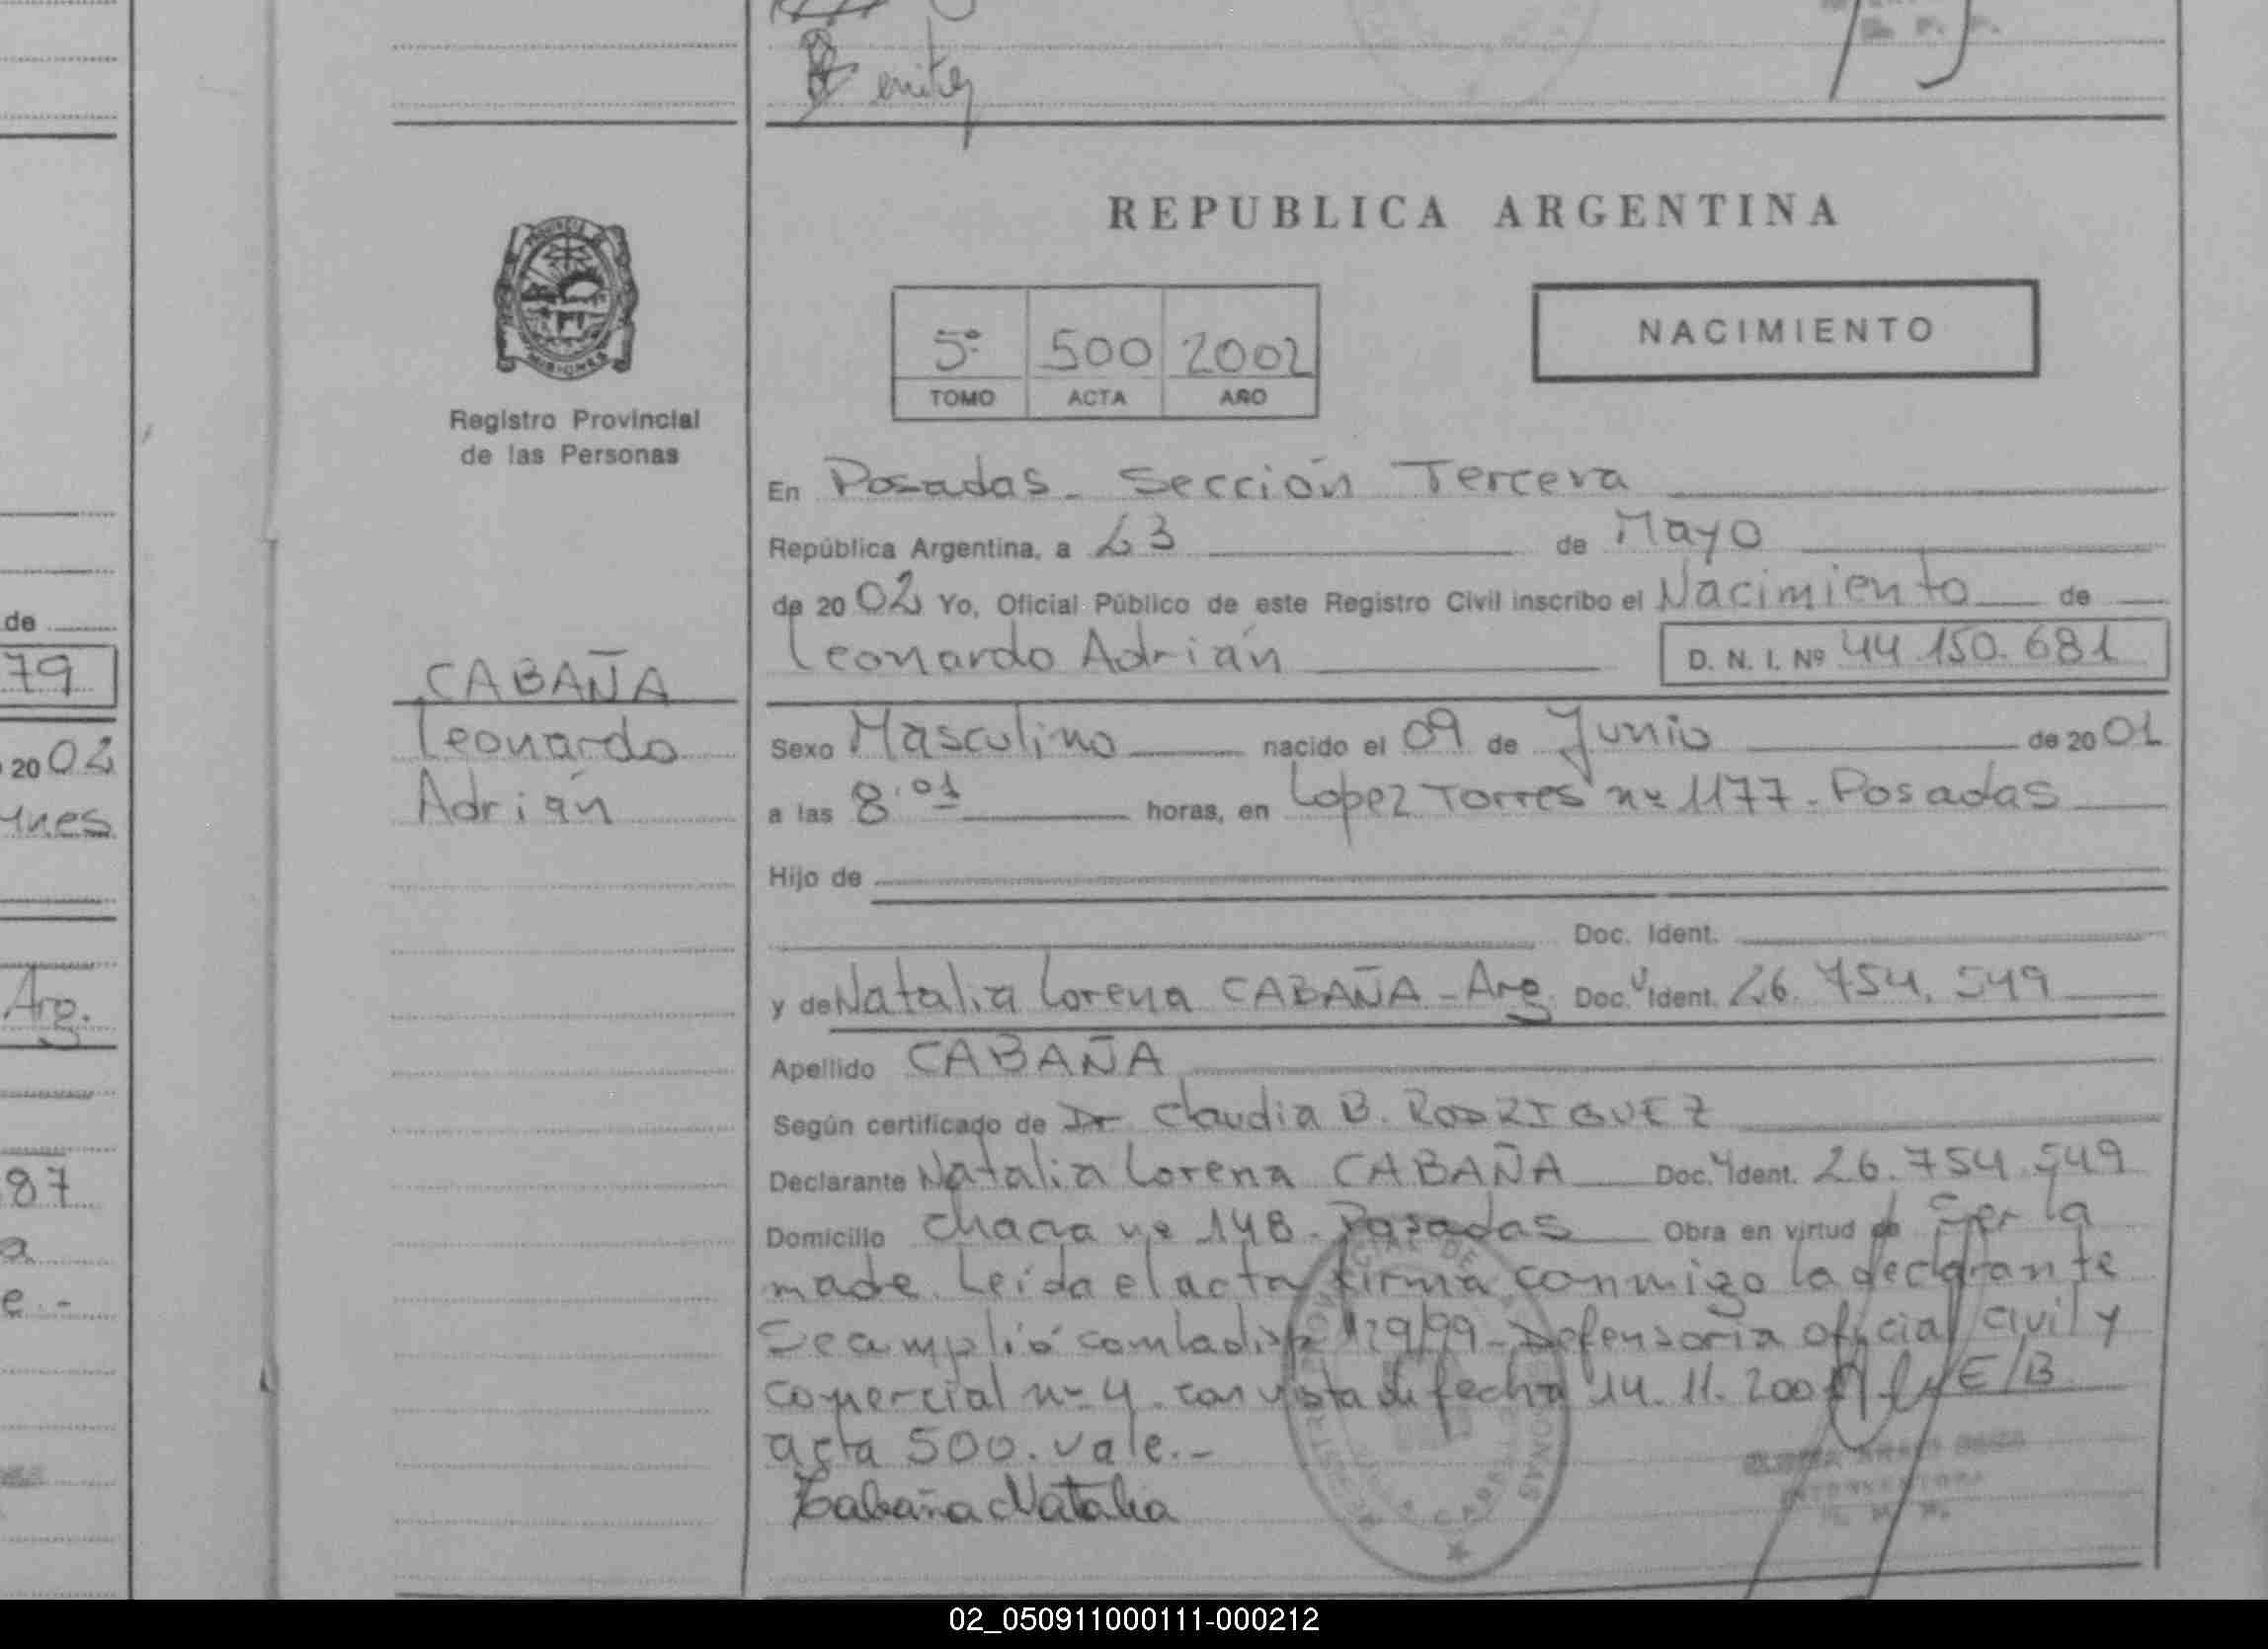 Benitez
REPUBLICA ARGENTINA
PROVINCIA DE
MISIONES
5º 500 2002
TOMO ACTA AÑO
NACIMIENTO
Registro Provincial
de las Personas
En Posadas - Sección Tercera
República Argentina, a 23 de Mayo
de 20 02 Yo, Oficial Público de este Registro Civil inscribo el Nacimiento de
Leonardo Adrián D. N. I. Nº 44.150.681
CABAÑA
Leonardo
Adrián
Sexo Masculino nacido el 09 de Junio de 20 01
a las 8,01 horas, en Lopez Torres nº 1177 - Posadas
Hijo de
Doc. Ident.
y de Natalia Lorena CABAÑA - Arg. Doc. Ident. 26.754.549
Apellido CABAÑA
Según certificado de Dr Claudia B. RODRIGUEZ
Declarante Natalia Lorena CABAÑA Doc. Ident. 26.754.549
Domicilio chacra nº 148 - Posadas Obra en virtud de Ser la
made. Leida el acta firma conmigo la declarante
Se cumplió con la disp 129/99 - Defensoria oficial civil y
comercial nº 4. con vista de fecha 14.11.200 E/B
acta 500. vale.-
Cabaña Natalia
de
79
20 02
unes
Arg.
87
a
e.-
02_050911000111-000212